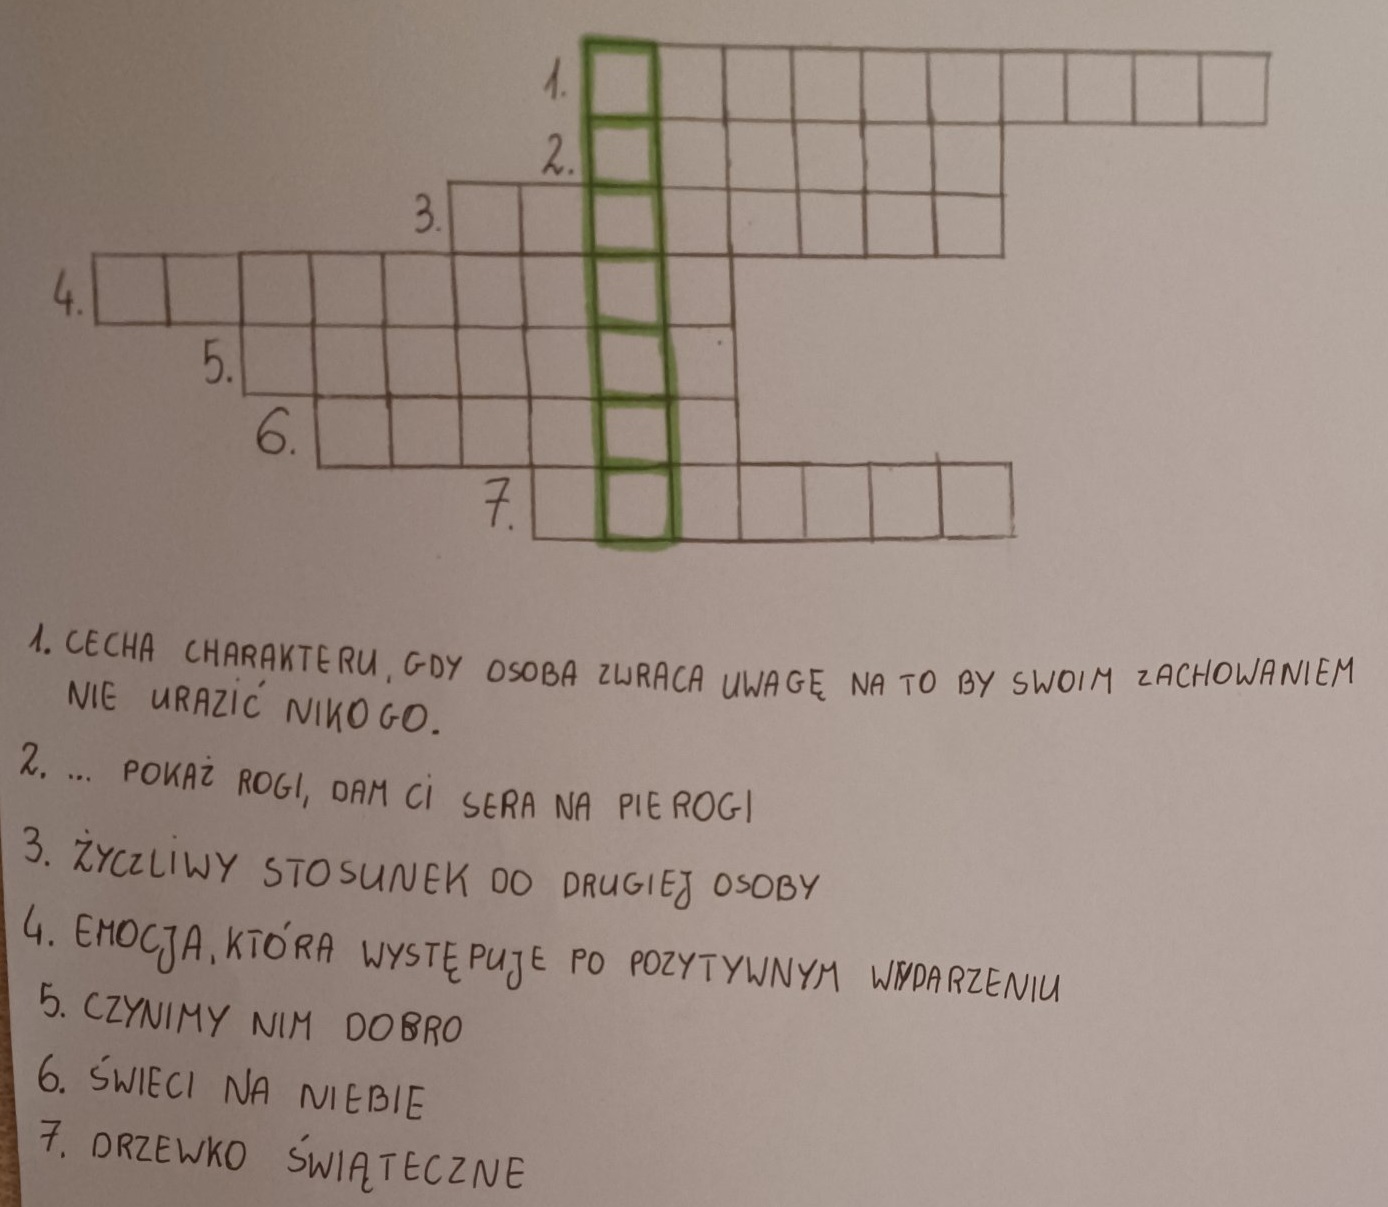 1.
2.
3.
4.
5.
6.
7.
1. CECHA CHARAKTERU, GDY OSOBA ZWRACA UWAGĘ NA TO BY SWOIM ZACHOWANIEM
NIE URAZIĆ NIKOGO.
2. ... POKAŻ ROGI, DAM CI SERA NA PIEROGI
3. ŻYCZLIWY STOSUNEK DO DRUGIEJ OSOBY
4. EMOCJA, KTÓRA WYSTĘPUJE PO POZYTYWNYM WYDARZENIU
5. CZYNIMY NIM DOBRO
6. ŚWIECI NA NIEBIE
7. DRZEWKO ŚWIĄTECZNE